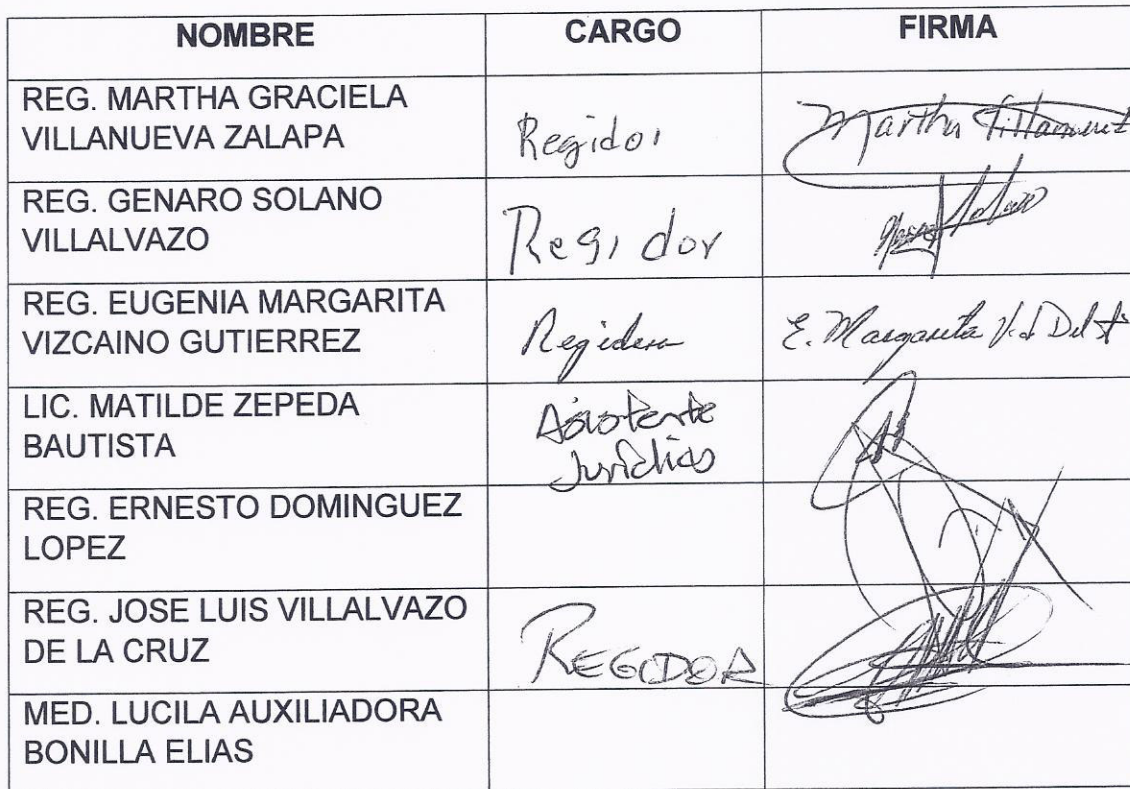 NOMBRE CARGO FIRMA
REG. MARTHA GRACIELA
VILLANUEVA ZALAPA
Regidor
Martha
REG. GENARO SOLANO
VILLALVAZO
Regidor
REG. EUGENIA MARGARITA
VIZCAINO GUTIERREZ
Regidora
E. Margarita
LIC. MATILDE ZEPEDA
BAUTISTA
Asistente
Jurídico
REG. ERNESTO DOMINGUEZ
LOPEZ
REG. JOSE LUIS VILLALVAZO
DE LA CRUZ
REGIDOR
MED. LUCILA AUXILIADORA
BONILLA ELIAS